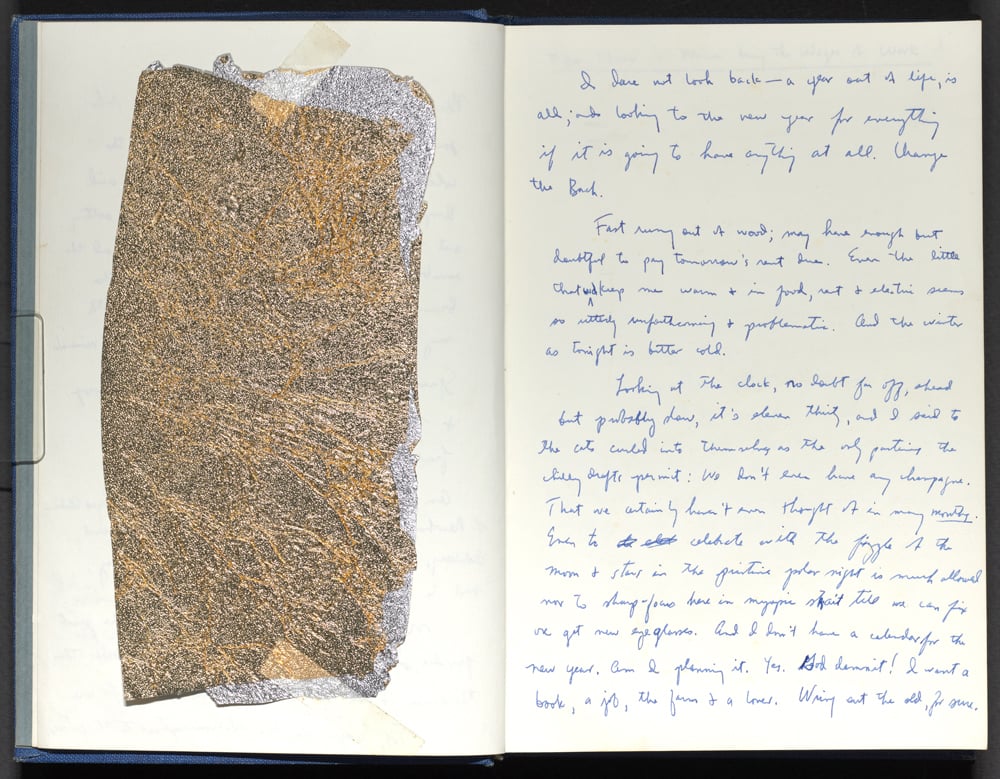 I dare not look back — a year out of life, is
all; and looking to the new year for everything
if it is going to have anything at all. Change
the Back.
Fast runing out of wood; may have enough but
doubtful to pay tomorrow's rent due. Even the little
that wd keep me warm & in food, rent & electric seems
so utterly unforthcoming & problematic. And the winter
as tonight is bitter cold.
Looking at the clock, no doubt far off, ahead
but probably slow, it's eleven thirty, and I said to
the cats curled into themselves as the only the
chilly drafts permit: We don't even have any champagne.
That we certainly haven't even thought of in many months.
Even to celebrate with the fizzle of the
moon & stars in the pristine polar night is much allowed
nor to sharp-focus here in myopic strait till we can fix
or get new eyeglasses. And I don't have a calendar for the
new year. Am I planning it. Yes. God damnit! I want a
book, a job, the farm & a lover. Wring out the old, for sure.